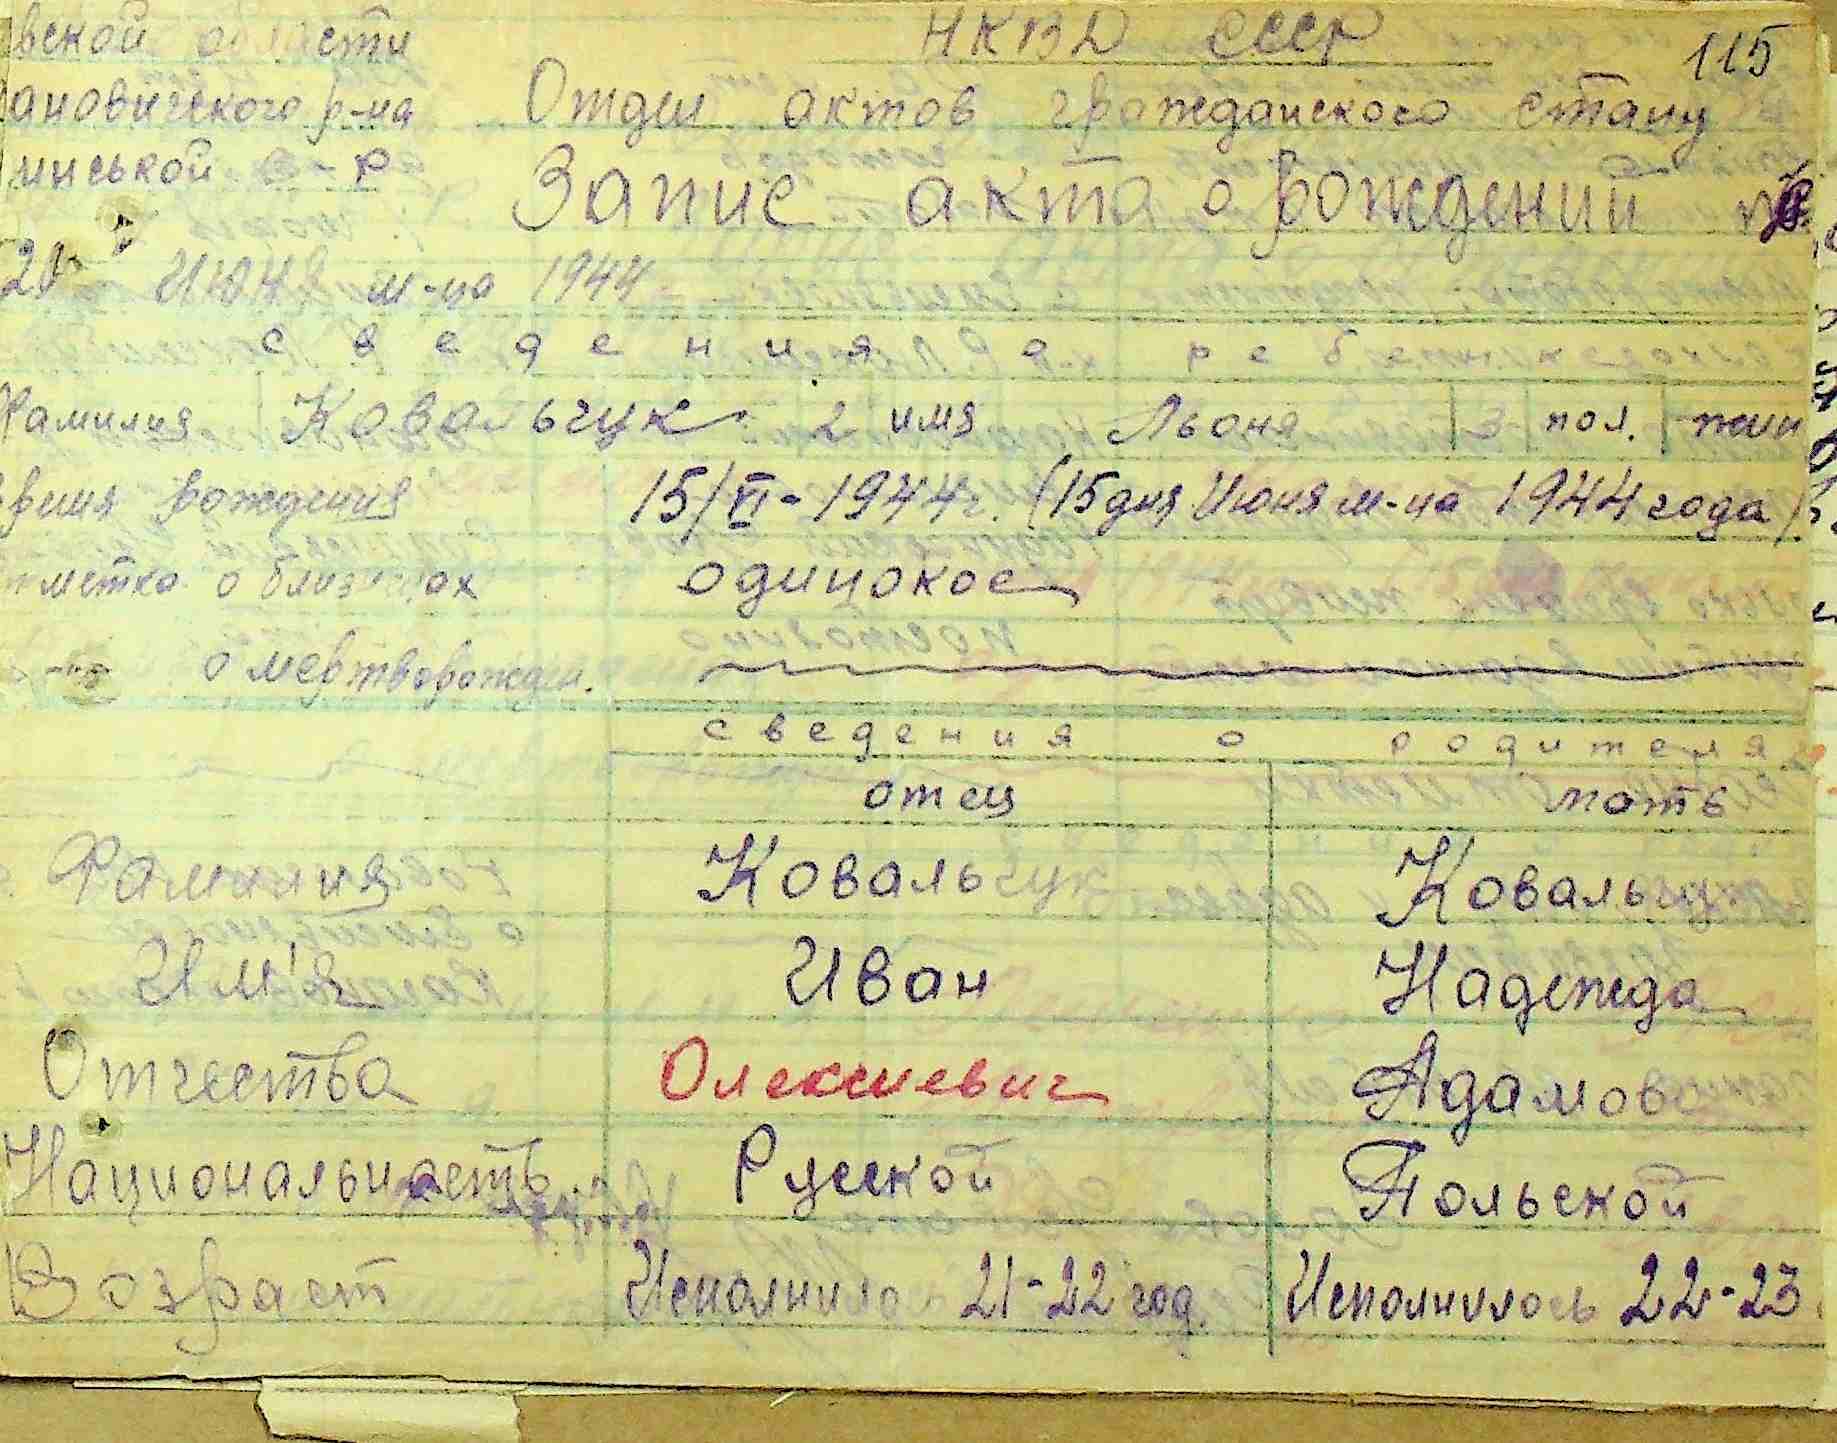 вской области НКВД СССР 115
ановичского р-на Отдел актов гражданского стану
минськой Запис акта о рождении №
20 Июня м-ца 1944
сведения о ребенке
Фамилия Ковальчук 2 имя Льоня 3 пол. жен
время рождения 15/VI-1944г. (15 дня Июня м-ца 1944 года)
метка о близнецах одинокое
-"- о мертворожден.
сведения о родителях
отец мать
Фамилия Ковальчук Ковальчук
Им'я Иван Надежда
Отчества Олексиевич Адамовна
Национальность Русской Польской
Возраст Исполнило 21-22 год. Исполнилось 22-23